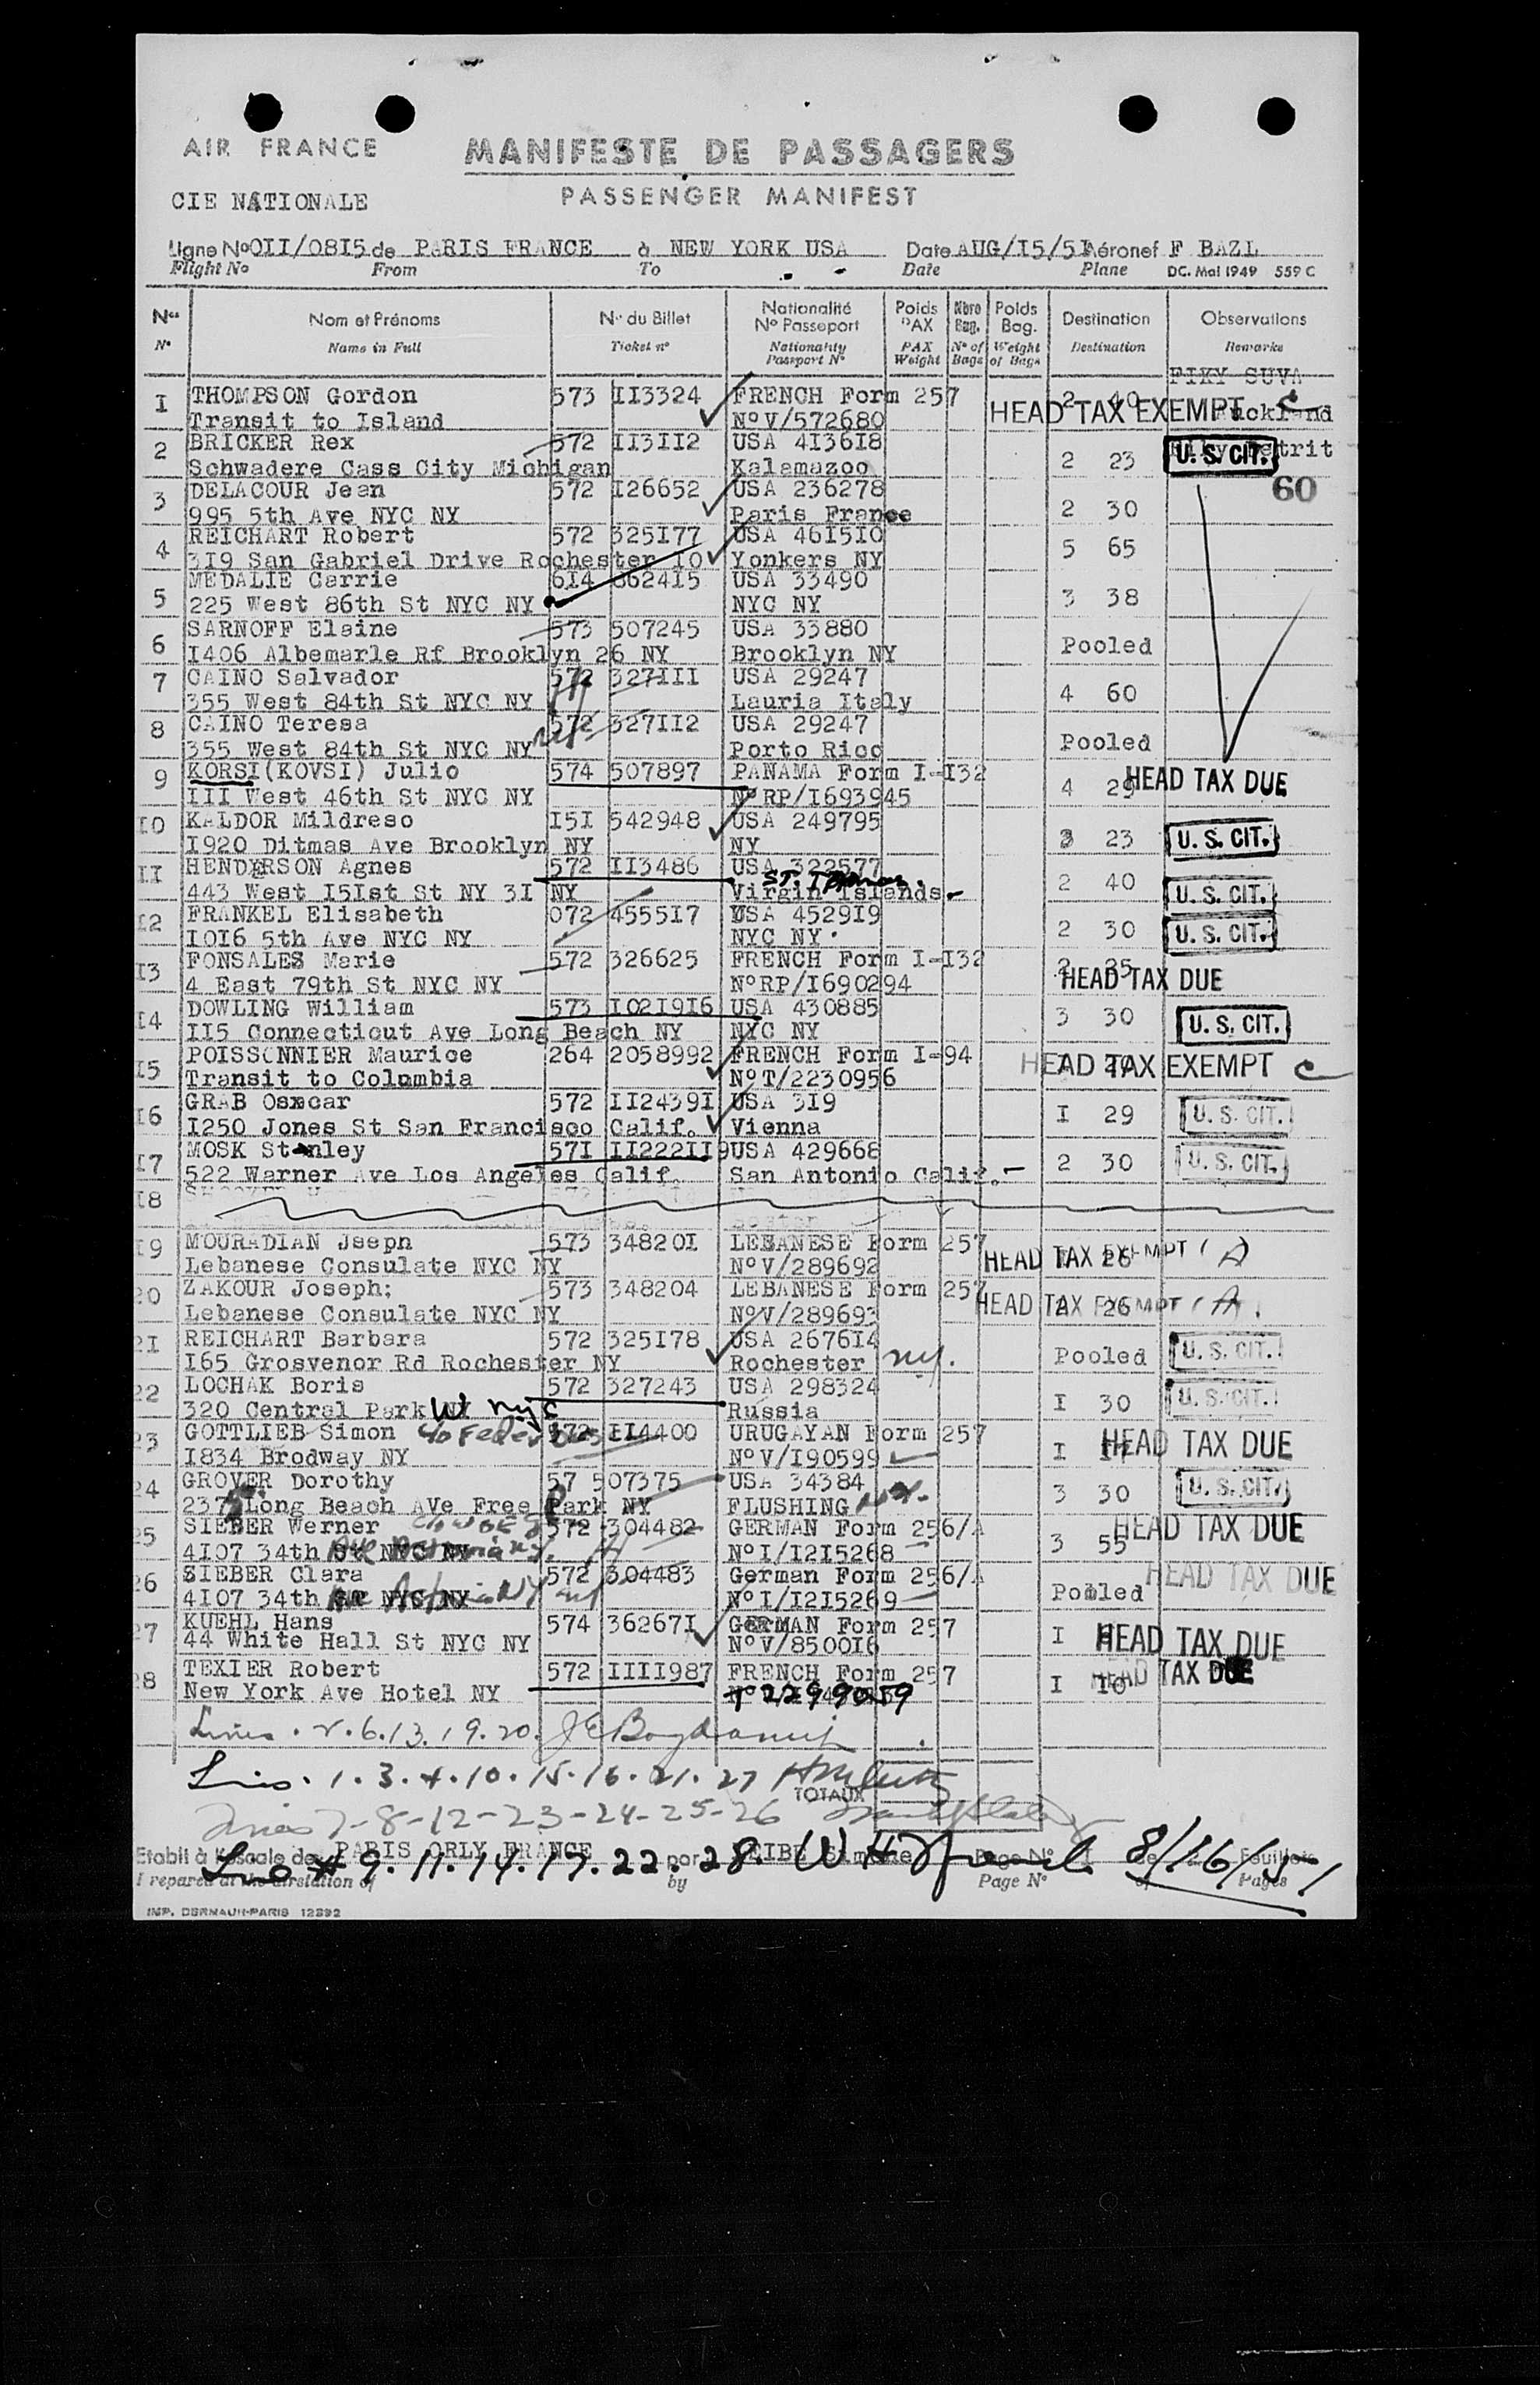 AIR FRANCE
MANIFESTE DE PASSAGERS
CIE NATIONALE
PASSENGER MANIFEST
Ligne No OII/08I5 de PARIS FRANCE à NEW YORK USA Date AUG/I5/5I Aéronef F BAZL
Flight No From To Date Plane DC. Mai 1949 559 C
Nos Nom et Prénoms No du Billet Nationalité No Passeport Poids PAX Nbre Bag. Poids Bag. Destination Observations
No Name in Full Ticket no Nationality Passport No PAX Weight No of Bags Weight of Bags Destination Remarks
FIKY SUVA
I THOMPSON Gordon 573 II3324 FRENCH Form 257 2 40 HEAD TAX EXEMPT C
Transit to Island No V/572680
2 BRICKER Rex 572 II3II2 USA 4I36I8 2 23 U. S. CIT.
Schwadere Cass City Michigan Kalamazoo
60
3 DELACOUR Jean 572 I26652 USA 236278 2 30
995 5th Ave NYC NY Paris France
4 REICHART Robert 572 325I77 USA 46I5IO 5 65
3I9 San Gabriel Drive Rochester IO Yonkers NY
5 MEDALIE Carrie 6I4 8624I5 USA 33490 3 38
225 West 86th St NYC NY NYC NY
6 SARNOFF Elaine 573 507245 USA 33880 Pooled
I406 Albemarle Rf Brooklyn 26 NY Brooklyn NY
7 CAINO Salvador 572 327III USA 29247 4 60
355 West 84th St NYC NY Lauria Italy
8 CAINO Teresa 572 327II2 USA 29247 Pooled
355 West 84th St NYC NY Porto Rico
9 KORSI(KOVSI) Julio 574 507897 PANAMA Form I-I32 4 29 HEAD TAX DUE
III West 46th St NYC NY No RP/I693945
IO KALDOR Mildreso I5I 542948 USA 249795 3 23 U. S. CIT.
I920 Ditmas Ave Brooklyn NY NY
II HENDERSON Agnes 572 II3486 USA 322577 2 40 U. S. CIT.
443 West I5Ist St NY 3I NY St. Thomas. Virgin Islands
I2 FRANKEL Elisabeth 072 4555I7 USA 4529I9 2 30 U. S. CIT.
IOI6 5th Ave NYC NY NYC NY
I3 FONSALES Marie 572 326625 FRENCH Form I-I32 2 25 HEAD TAX DUE
4 East 79th St NYC NY No RP/I690294
I4 DOWLING William 573 I02I9I6 USA 430885 3 30 U. S. CIT.
II5 Connecticut Ave Long Beach NY NYC NY
I5 POISSONNIER Maurice 264 2058992 FRENCH Form I-94 HEAD TAX EXEMPT C
Transit to Columbia No T/2230956
I6 GRAB Osxcar 572 II2439I USA 3I9 I 29 U. S. CIT.
I250 Jones St San Francisco Calif. Vienna
I7 MOSK Stanley 57I II222II9 USA 429668 2 30 U. S. CIT.
522 Warner Ave Los Angeles Calif. San Antonio Calif.
I8
I9 MOURADIAN Jsepn 573 34820I LEBANESE Form 257 26 HEAD TAX EXEMPT (A)
Lebanese Consulate NYC NY No V/289692
20 ZAKOUR Joseph; 573 348204 LEBANESE Form 257 2 26 HEAD TAX EXEMPT (A)
Lebanese Consulate NYC NY No V/289693
2I REICHART Barbara 572 325I78 USA 2676I4 Pooled U. S. CIT.
I65 Grosvenor Rd Rochester NY Rochester NY.
22 LOCHAK Boris 572 327243 USA 298324 I 30 U. S. CIT.
320 Central Park W NYC Russia
23 GOTTLIEB Simon 572 II4400 URUGAYAN Form 257 I I7 HEAD TAX DUE
I834 Brodway NY No V/I90599
24 GROVER Dorothy 57 507375 USA 34384 3 30 U. S. CIT.
237 Long Beach AVe Free Park NY FLUSHING N.Y.
25 SIEBER Werner 572 304482 GERMAN Form 256/A 3 55 HEAD TAX DUE
4I07 34th Ave Astoria NY. No I/I2I5268
26 SIEBER Clara 572 304483 German Form 256/A Pooled HEAD TAX DUE
4I07 34th Ave Astoria NY No I/I2I5269
27 KUEHL Hans 574 36267I GERMAN Form 257 I HEAD TAX DUE
44 White Hall St NYC NY No V/8500I6
28 TEXIER Robert 572 IIII987 FRENCH Form 257 I IO HEAD TAX DUE
New York Ave Hotel NY T 2299059
Lines . 2. 6. 13. 19. 20.
Lines . 1 . 3 . 4 . 10 . 15 . 16 . 21 . 27
TOTAUX
Lines 7-8-12-23-24-25-26
Etabli à l'escale de PARIS ORLY FRANCE par Page No de Feuillets
Line # 9. 11. 14. 17. 22. 28. 8/16/51
I repared at the airstation of by Page No of Pages
IMP. DERNAUH-PARIS 12892